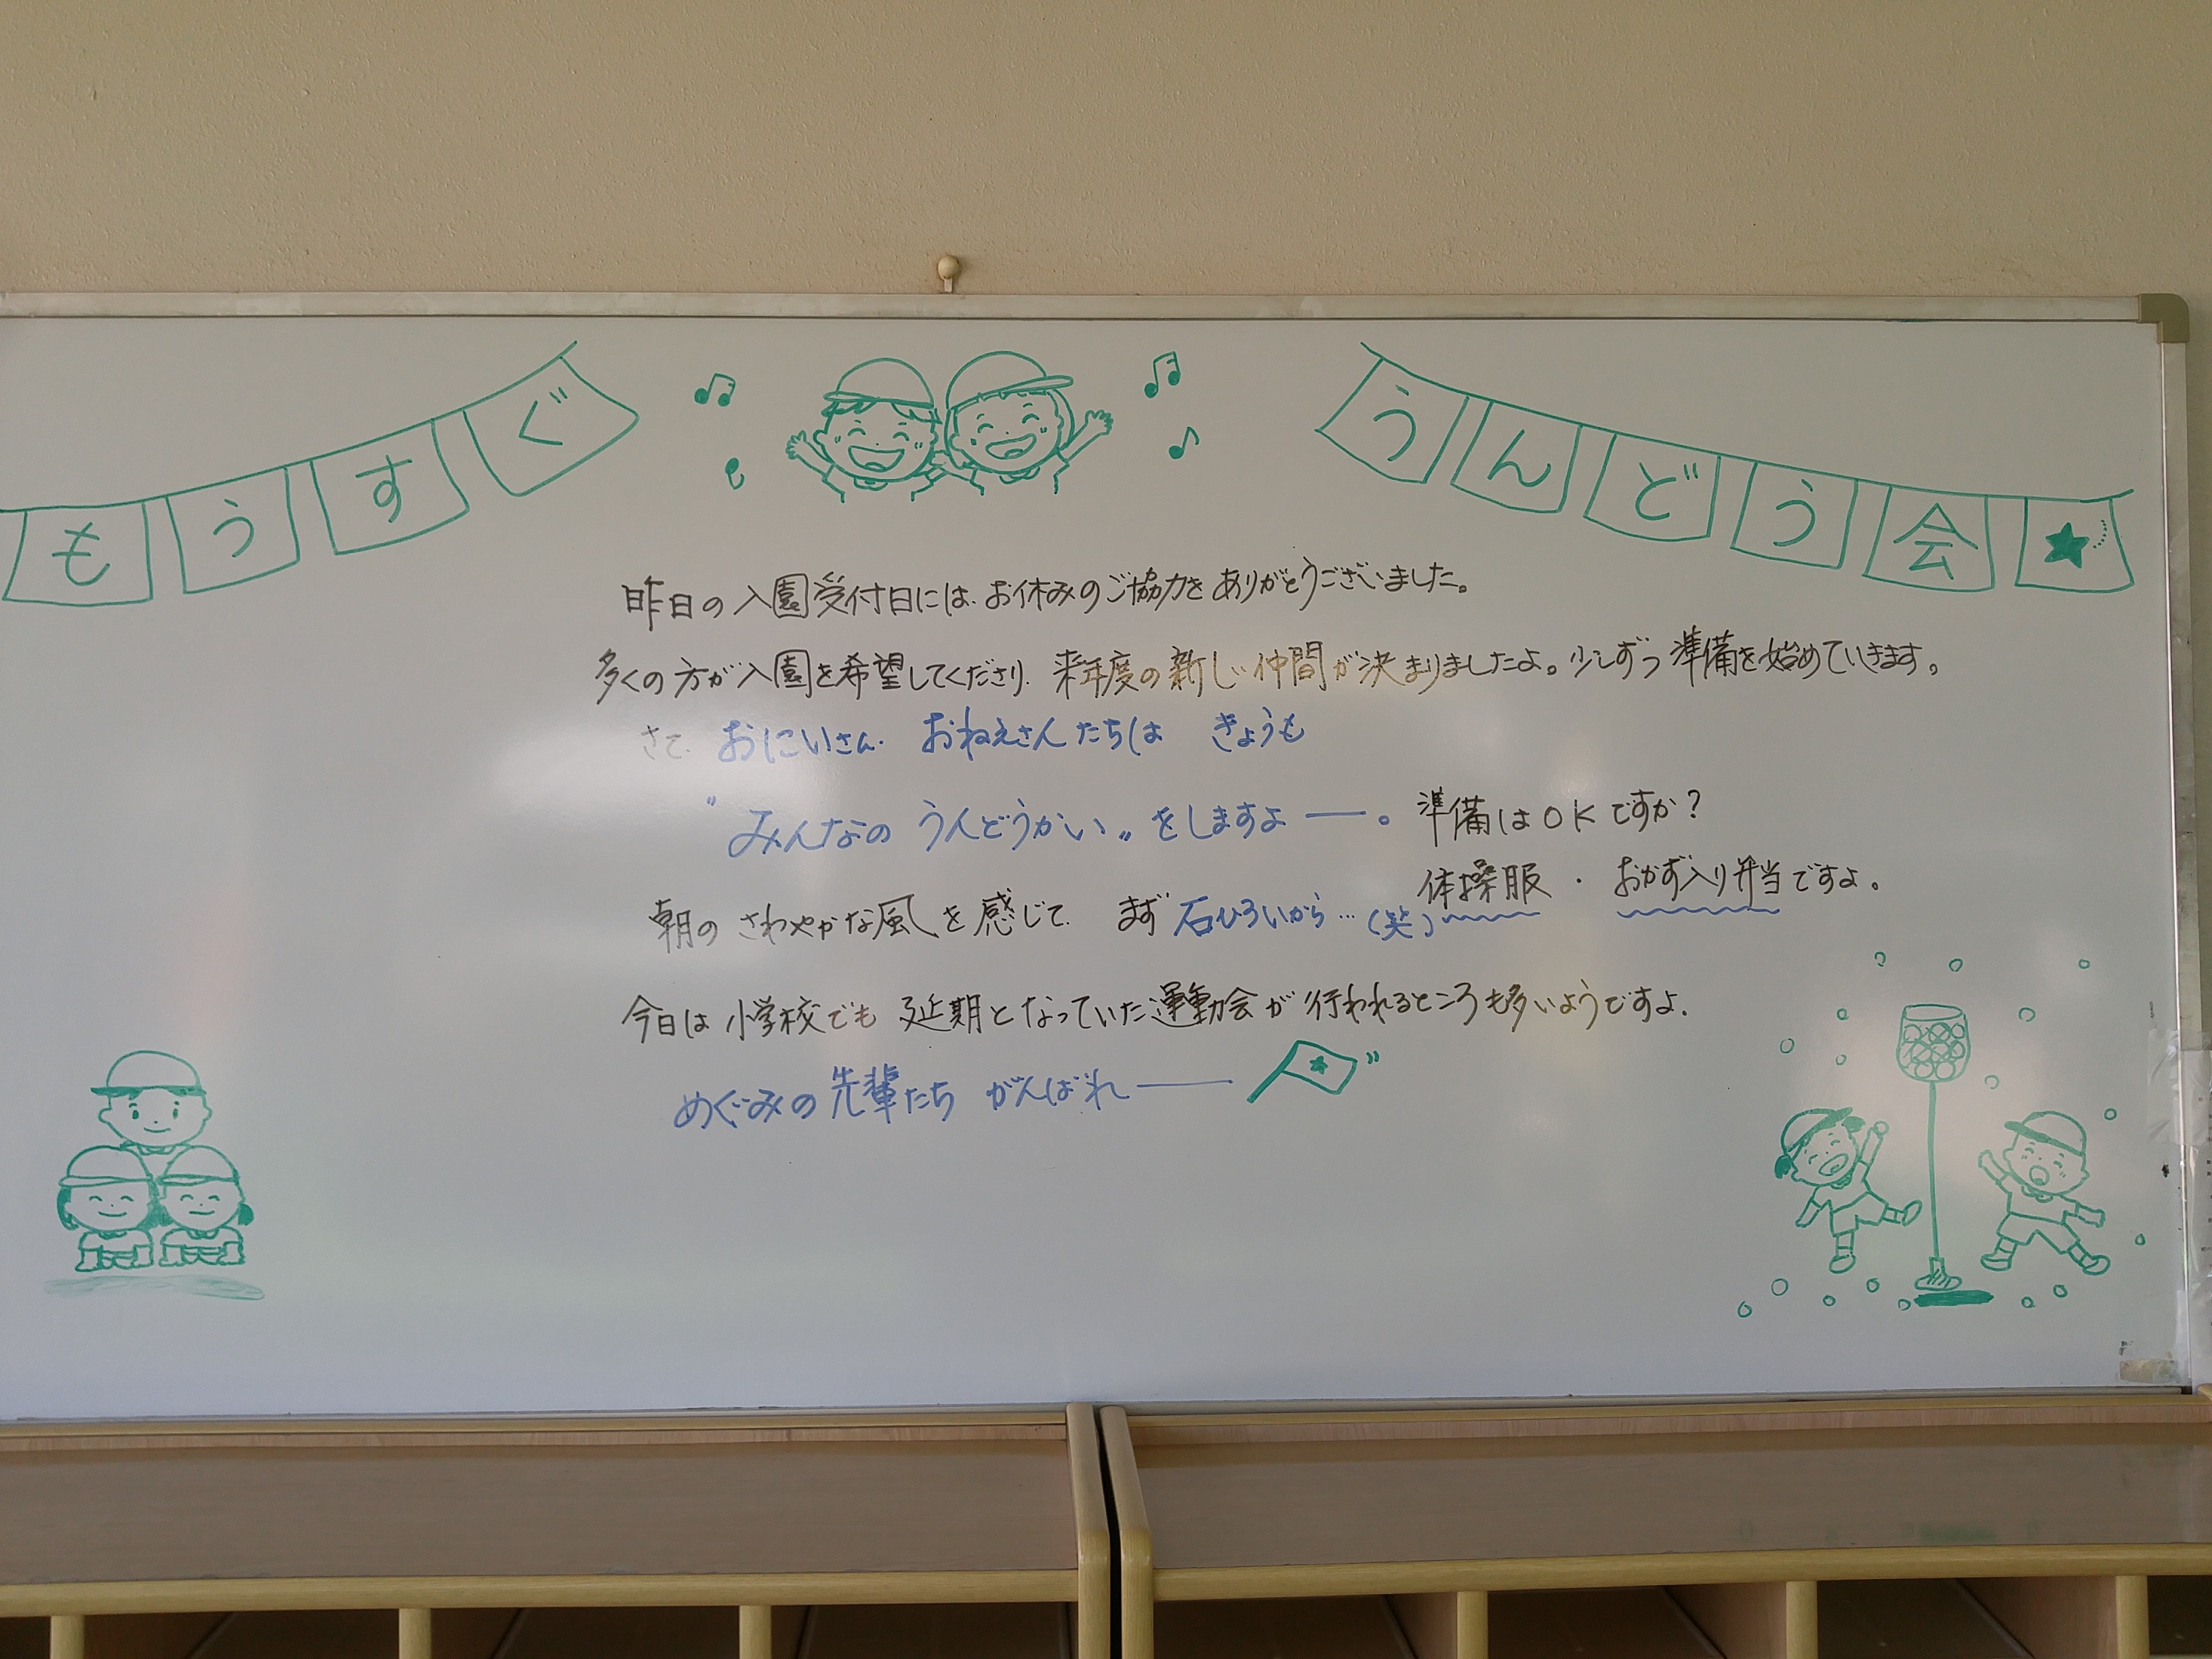 もうすぐ
うんどう会★
昨日の入園受付日には、お休みのご協力をありがとうございました。
多くの方が入園を希望してくださり、来年度の新しい仲間が決まりましたよ。少しずつ準備を始めていきます。
さて、おにいさん、おねえさんたちは きょうも
〝みんなの うんどうかい〟をしますよ──。
準備はOKですか?
体操服・おかず入り弁当ですよ。
朝の さわやかな風を感じて、まず 石ひろいから…(笑)
今日は小学校でも延期となっていた運動会が行われるところも多いようですよ。
めぐみの先輩たち がんばれ──